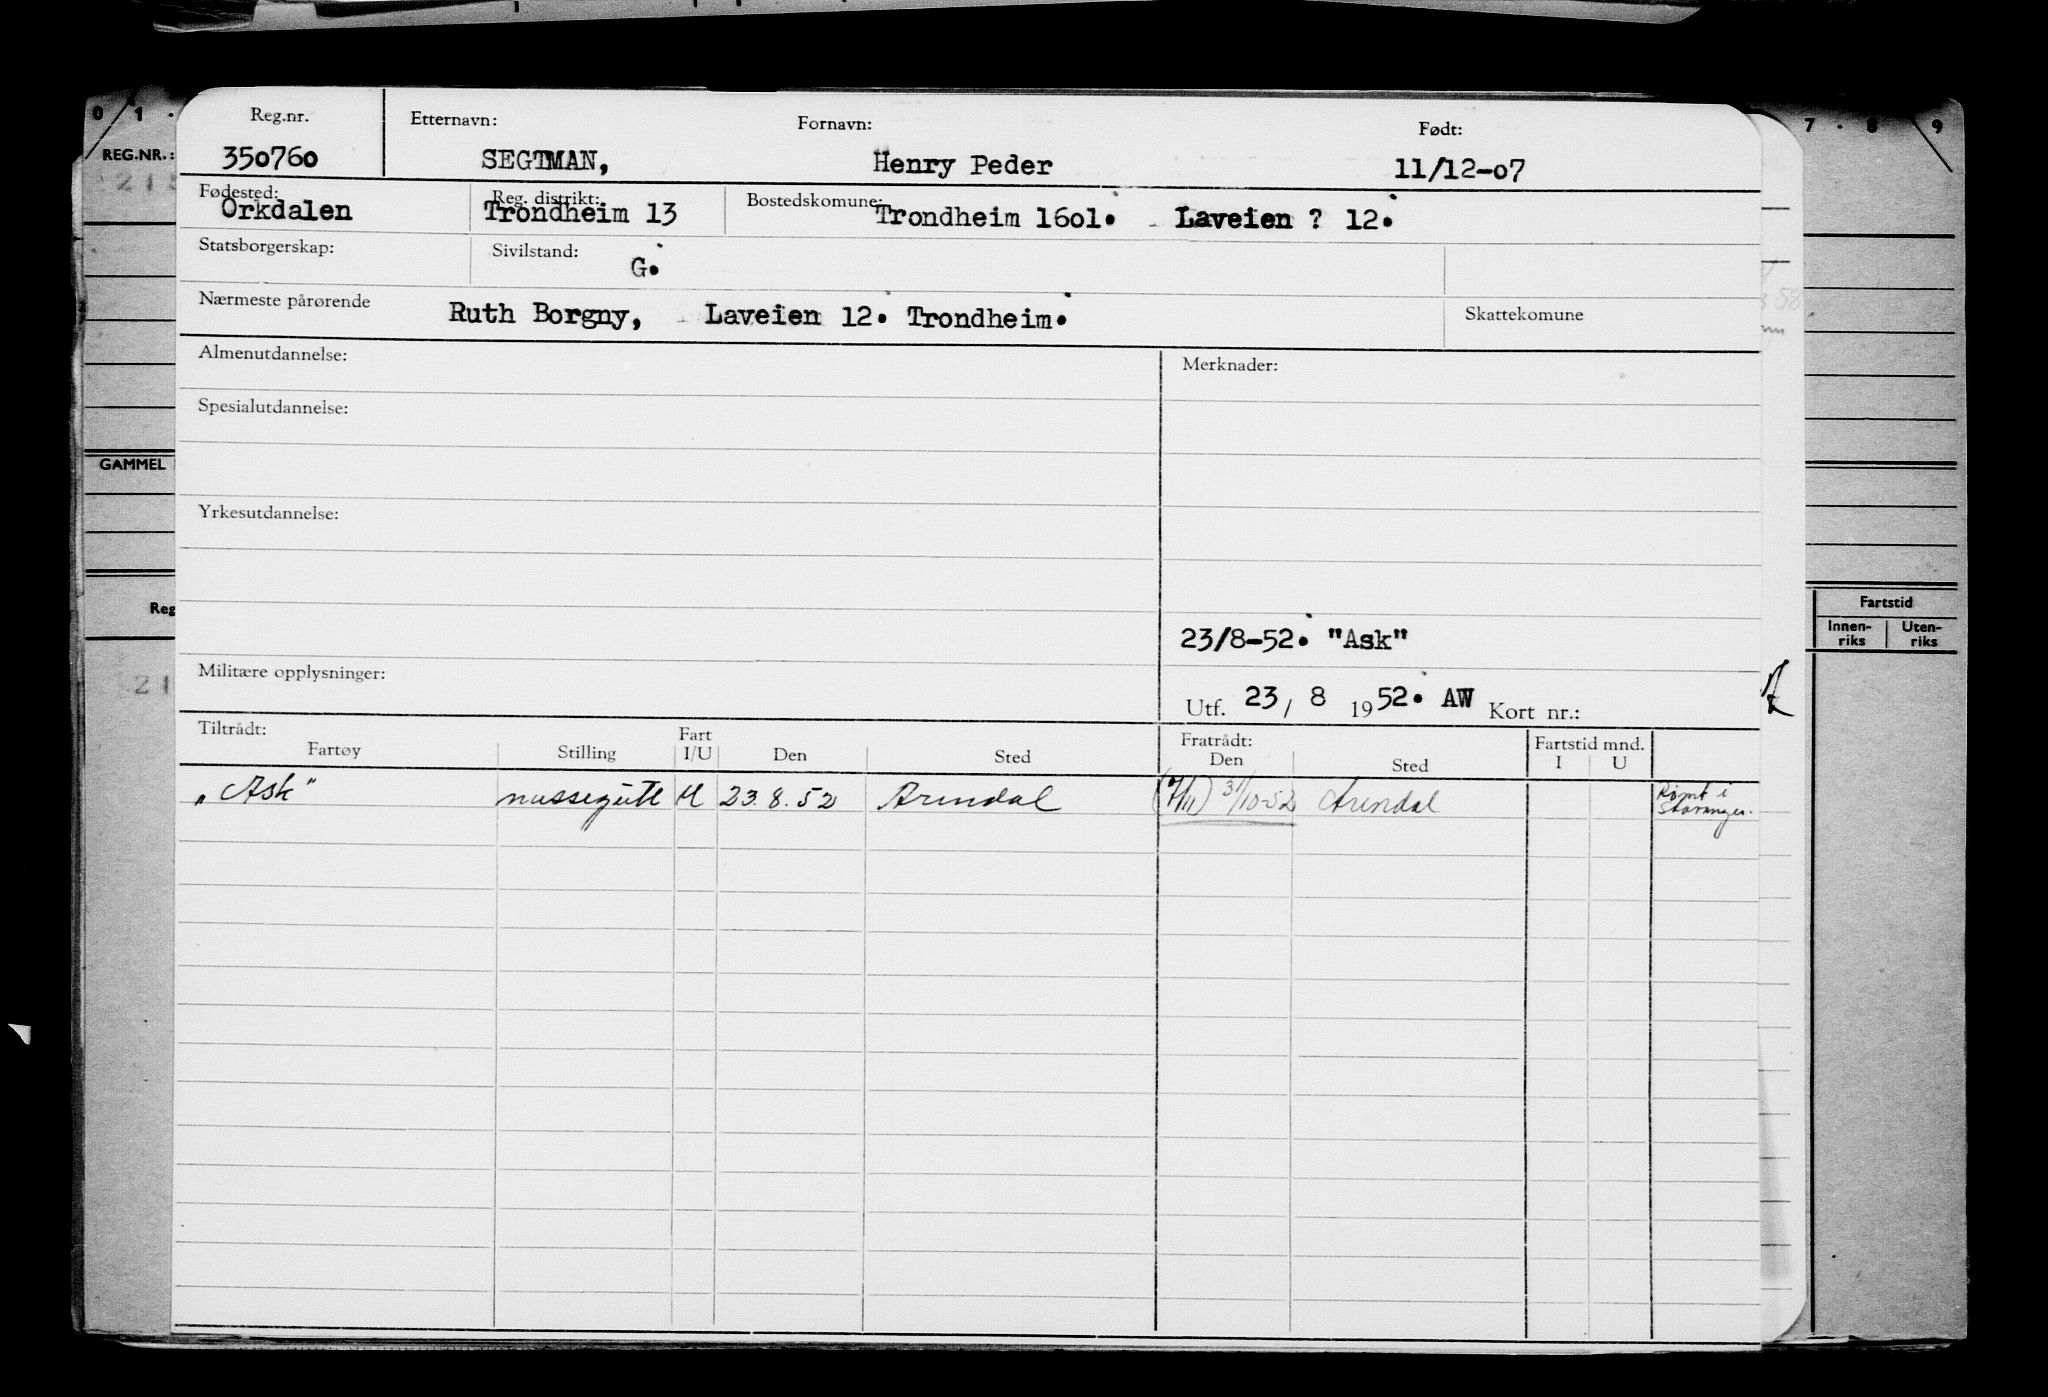 0 1 . 7 . 8 9
REG.NR.:
Reg.nr. Etternavn: Fornavn: Født:
350760 SEGTMAN, Henry Peder 11/12-07
Fødested: Reg. distrikt: Bostedskomune:
Orkdalen Trondheim 13 Trondheim 1601. Laveien ? 12.
Statsborgerskap: Sivilstand: G.
Nærmeste pårørende Ruth Borgny, Laveien 12. Trondheim. Skattekomune
Almenutdannelse: Merknader:
Spesialutdannelse:
GAMMEL
Yrkesutdannelse:
Reg
Fartstid
Innen-riks Uten-riks
23/8-52. "Ask"
Militære opplysninger:
Utf. 23/ 8 1952. AW Kort nr.:
Tiltrådt: Fratrådt: Fartstid mnd.
Fartøy Stilling Fart I/U Den Sted Den Sted I U
"Ask" messegutt U 23.8.52 Arendal 31/10-52 Arendal Rømt i
Stavanger.